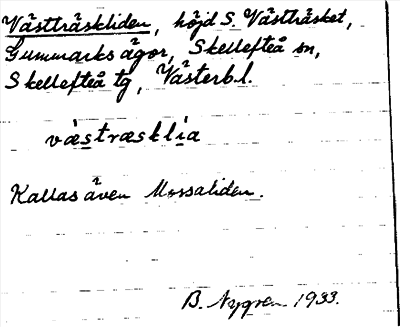 Västträskliden, höjd S. Västträsket,
Gummarks ägor, Skellefteå sn,
Skellefteå tg, Västerb.l.
västræsklia
Kallas även Mossaliden.
B. Nygren 1933.